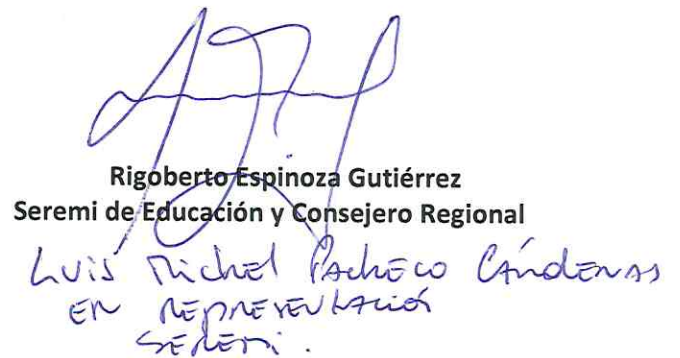 Rigoberto Espinoza Gutiérrez
Seremi de Educación y Consejero Regional
Luis Michel Pacheco Cárdenas
EN REPRESENTACIÓN
SEREMI.